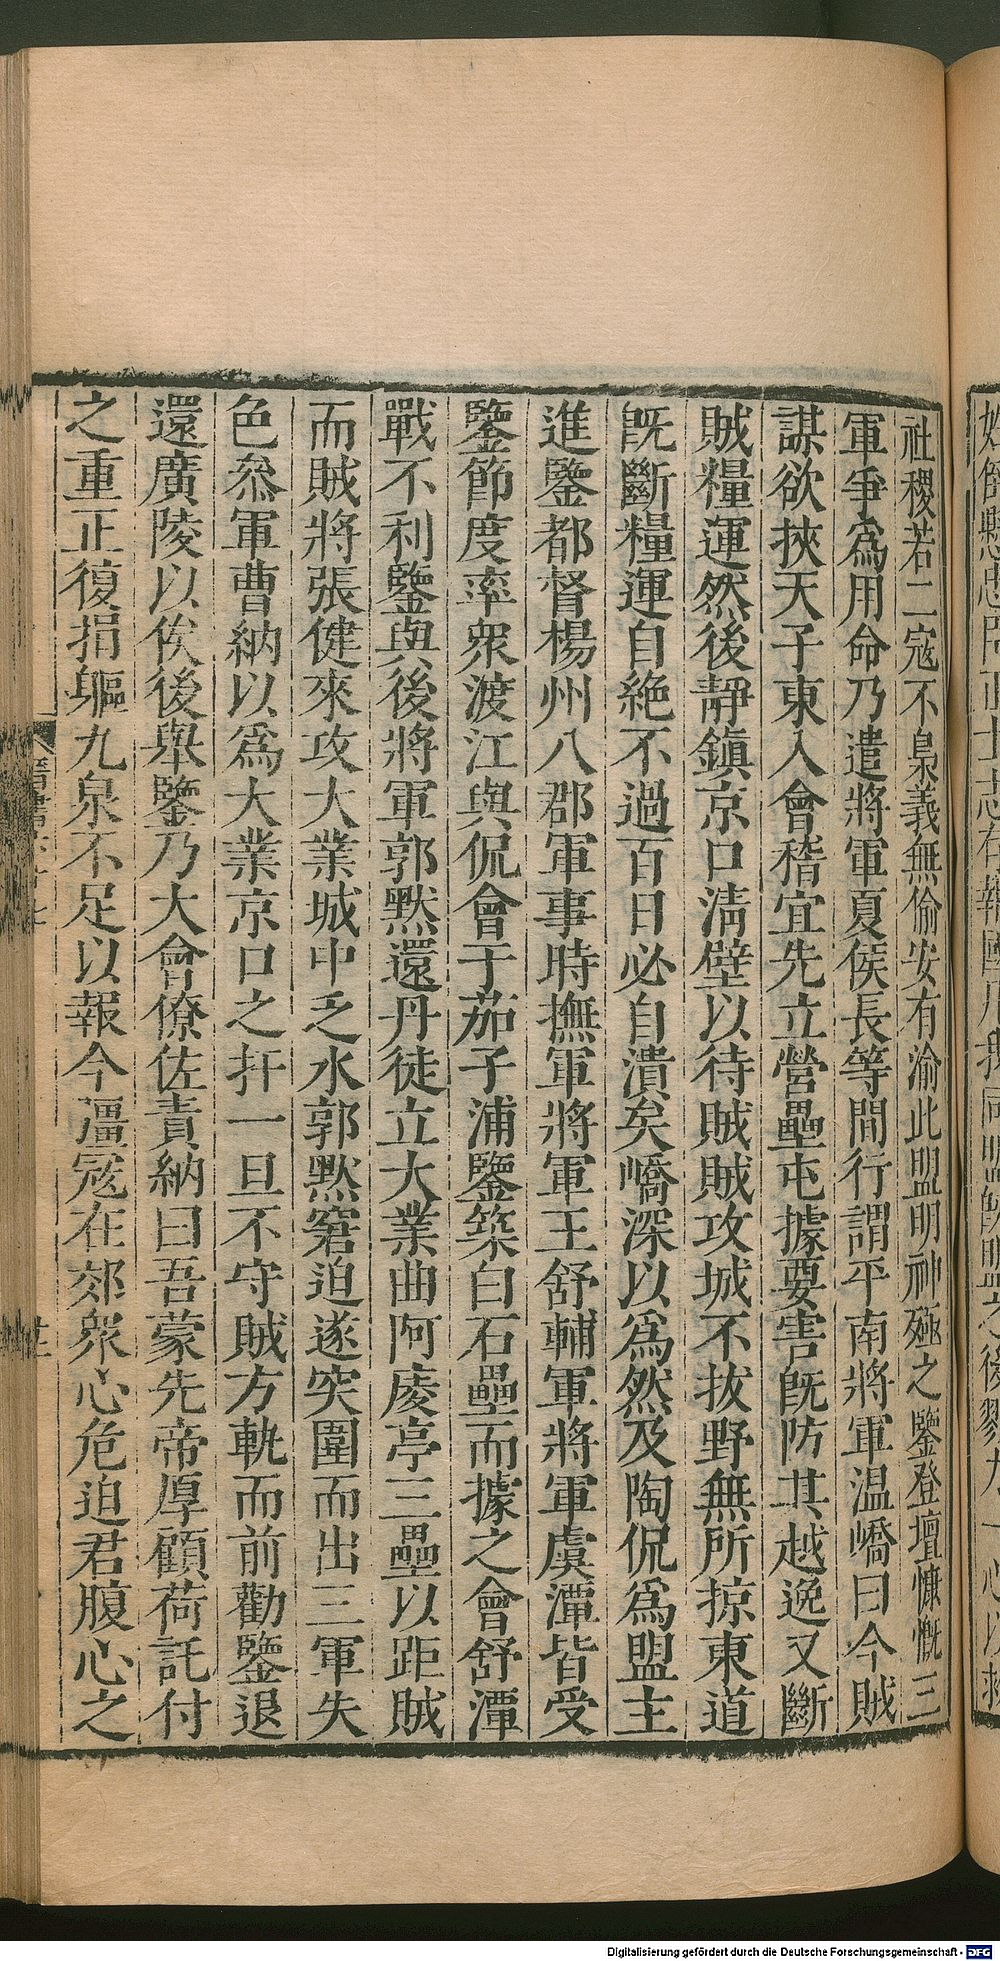 社稷若二寇不梟義無偷安有渝此盟明神殛之鑒登壇慷慨三
軍爭爲用命乃遣將軍夏侯長等間行謂平南將軍温嶠曰今賊
謀欲挾天子東入會稽宜先立營壘屯據要害旣防其越逸又斷
賊糧運然後靜鎮京口淸壁以待賊賊攻城不拔野無所掠東道
旣斷糧運自絶不過百日必自潰矣嶠深以爲然及陶侃爲盟主
進鑒都督楊州八郡軍事時撫軍將軍王舒輔軍將軍虞潭皆受
鑒節度率衆渡江與侃會于茄子浦鑒築白石壘而據之會舒潭
戰不利鑒與後將軍郭默還丹徒立大業曲阿庱亭三壘以距賊
而賊將張健來攻大業城中乏水郭默窘迫遂突圍而出三軍失
色叅軍曹納以爲大業京口之扞一旦不守賊方軌而前勸鑒退
還廣陵以俟後舉鑒乃大會僚佐責納曰吾蒙先帝厚顧荷託付
之重正復捐軀九泉不足以報今彊寇在郊衆心危迫君腹心之
Digitalisierung gefördert durch die Deutsche Forschungsgemeinschaft - DFG